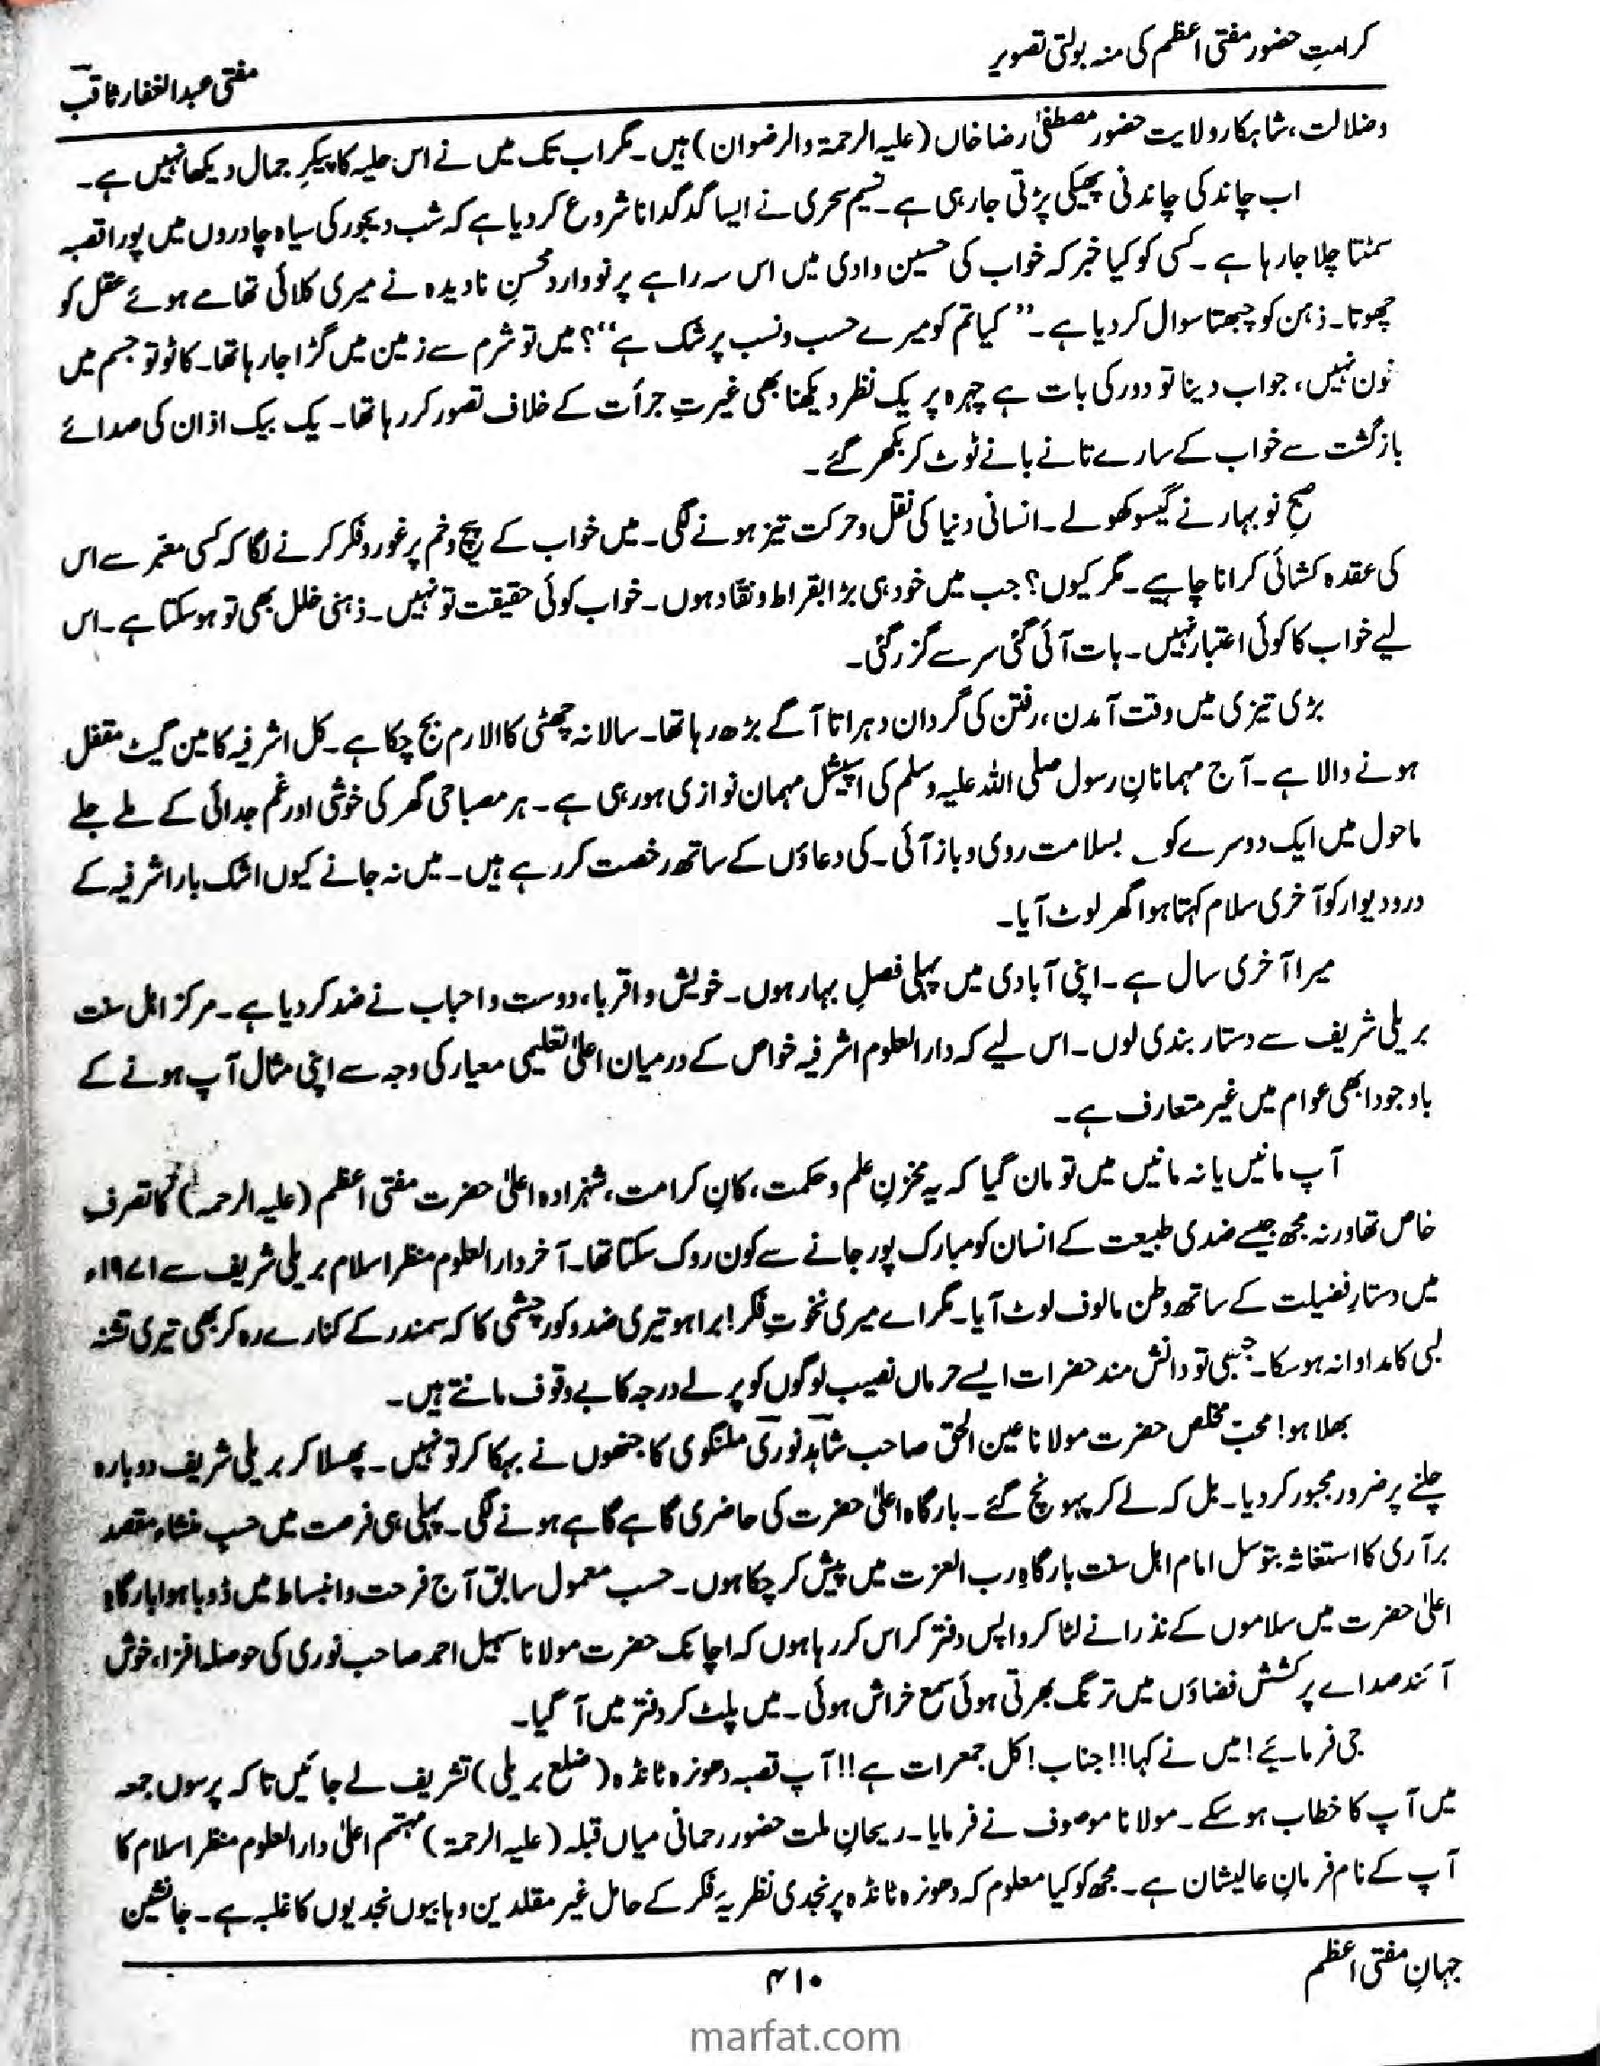 کرامتِ حضور مفتی اعظم کی منہ بولتی تصویر
مفتی عبدالغفار ثاقب
وضلالت، شاہکار ولایت حضور مصطفیٰ رضا خاں (علیہ الرحمۃ والرضوان) ہیں۔ مگر اب تک میں نے اس حلیہ کا پیکرِ جمال دیکھا نہیں ہے۔
اب چاند کی چاندنی پھیکی پڑتی جا رہی ہے۔ نسیم سحری نے ایسا گدگدانا شروع کر دیا ہے کہ شب دیجور کی سیاہ چادروں میں پورا قصبہ
سمٹتا چلا جا رہا ہے۔ کسی کو کیا خبر کہ خواب کی حسین وادی میں اس سہ راہے پر نو وارد محسنِ نادیدہ نے میری کلائی تھامے ہوئے عقل کو
چھوتا۔ ذہن کو چبھتا سوال کر دیا ہے۔ ”کیا تم کو میرے حسب و نسب پر شک ہے“؟ میں تو شرم سے زمین میں گڑا جا رہا تھا۔ کاٹو تو جسم میں
خون نہیں، جواب دینا تو دور کی بات ہے چہرہ پر یک نظر دیکھنا بھی غیرتِ جرأت کے خلاف تصور کر رہا تھا۔ یک بیک اذان کی صدائے
بازگشت سے خواب کے سارے تانے بانے ٹوٹ کر بکھر گئے۔
صبحِ نو بہار نے گیسو کھولے۔ انسانی دنیا کی نقل و حرکت تیز ہونے لگی۔ میں خواب کے پیچ و خم پر غور و فکر کرنے لگا کہ کسی معبر سے اس
کی عقدہ کشائی کرانا چاہیے۔ مگر کیوں؟ جب میں خود ہی بڑا بقراط و نقاد ہوں۔ خواب کوئی حقیقت تو نہیں۔ ذہنی خلل بھی تو ہو سکتا ہے۔ اس
لیے خواب کا کوئی اعتبار نہیں۔ بات آئی گئی سر سے گزر گئی۔
بڑی تیزی میں وقت آمدن، رفتن کی گردان دہراتا آگے بڑھ رہا تھا۔ سالانہ چھٹی کا الارم بج چکا ہے۔ کل اشرفیہ کا مین گیٹ مقفل
ہونے والا ہے۔ آج مہمانانِ رسول صلی اللہ علیہ وسلم کی اسپیشل مہمان نوازی ہو رہی ہے۔ ہر مصباحی گھر کی خوشی اور غم جدائی کے ملے جلے
ماحول میں ایک دوسرے کو ؎ بسلامت روی و باز آئی۔ کی دعاؤں کے ساتھ رخصت کر رہے ہیں۔ میں نہ جانے کیوں اشک بار اشرفیہ کے
در و دیوار کو آخری سلام کہتا ہوا گھر لوٹ آیا۔
میرا آخری سال ہے۔ اپنی آبادی میں پہلی فصلِ بہار ہوں۔ خویش و اقربا، دوست و احباب نے ضد کر دیا ہے۔ مرکز اہل سنت
بریلی شریف سے دستار بندی لوں۔ اس لیے کہ دارالعلوم اشرفیہ خواص کے درمیان اعلیٰ تعلیمی معیار کی وجہ سے اپنی مثال آپ ہونے کے
باوجود ابھی عوام میں غیر متعارف ہے۔
آپ مانیں یا نہ مانیں میں تو مان گیا کہ یہ مخزنِ علم و حکمت، کانِ کرامت، شہزادہ اعلیٰ حضرت مفتی اعظم (علیہ الرحمہ) کا تصرفِ
خاص تھا ورنہ مجھ جیسے ضدی طبیعت کے انسان کو مبارک پور جانے سے کون روک سکتا تھا۔ آخر دارالعلوم منظر اسلام بریلی شریف سے ۱۹۷۱ء
میں دستارِ فضیلت کے ساتھ وطن مالوف لوٹ آیا۔ مگر اے میری نخوتِ فکر! برا ہو تیری ضد و کور چشمی کا کہ سمندر کے کنارے رہ کر بھی تیری تشنہ
لبی کا مداوا نہ ہو سکا۔ جبھی تو دانش مند حضرات ایسے حرماں نصیب لوگوں کو پرلے درجہ کا بے وقوف مانتے ہیں۔
بھلا ہو! محبّ مخلص حضرت مولانا عین الحق صاحب شاہدؔ نوریؔ ملنگوی کا جنھوں نے بہکا کر تو نہیں۔ پھسلا کر بریلی شریف دوبارہ
چلنے پر ضرور مجبور کر دیا۔ بل کہ لے کر پہونچ گئے۔ بارگاہ اعلیٰ حضرت کی حاضری گاہے گاہے ہونے لگی۔ پہلی ہی فرصت میں حسب منشاء مقصد
برآری کا استغاثہ بتوسل امام اہل سنت بارگاہِ رب العزت میں پیش کر چکا ہوں۔ حسب معمول سابق آج فرحت و انبساط میں ڈوبا ہوا بارگاہِ
اعلیٰ حضرت میں سلاموں کے نذرانے لٹا کر واپس دفتر کراس کر رہا ہوں کہ اچانک حضرت مولانا سہیل احمد صاحب نوری کی حوصلہ افزاء، خوش
آئند صدا اے پر کشش فضاؤں میں ترنگ بھرتی ہوئی سمع خراش ہوئی۔ میں پلٹ کر دفتر میں آ گیا۔
جی فرمائیے! میں نے کہا!!! جناب! کل جمعرات ہے!! آپ قصبہ دھونرہ ٹانڈہ (ضلع بریلی) تشریف لے جائیں تا کہ پرسوں جمعہ
میں آپ کا خطاب ہو سکے۔ مولانا موصوف نے فرمایا۔ ریحانِ ملت حضور رحمانی میاں قبلہ (علیہ الرحمۃ) مہتمم اعلیٰ دارالعلوم منظر اسلام کا
آپ کے نام فرمانِ عالیشان ہے۔ مجھ کو کیا معلوم کہ دھونرہ ٹانڈہ پر نجدی نظریۂ فکر کے حامل غیر مقلدین وہابیوں نجدیوں کا غلبہ ہے۔ جانشین
جہانِ مفتی اعظم
۴۱۰
marfat.com